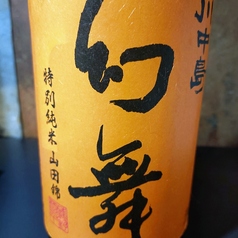 川中島
幻舞
特別純米 山田錦